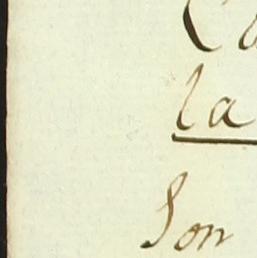 la
Son